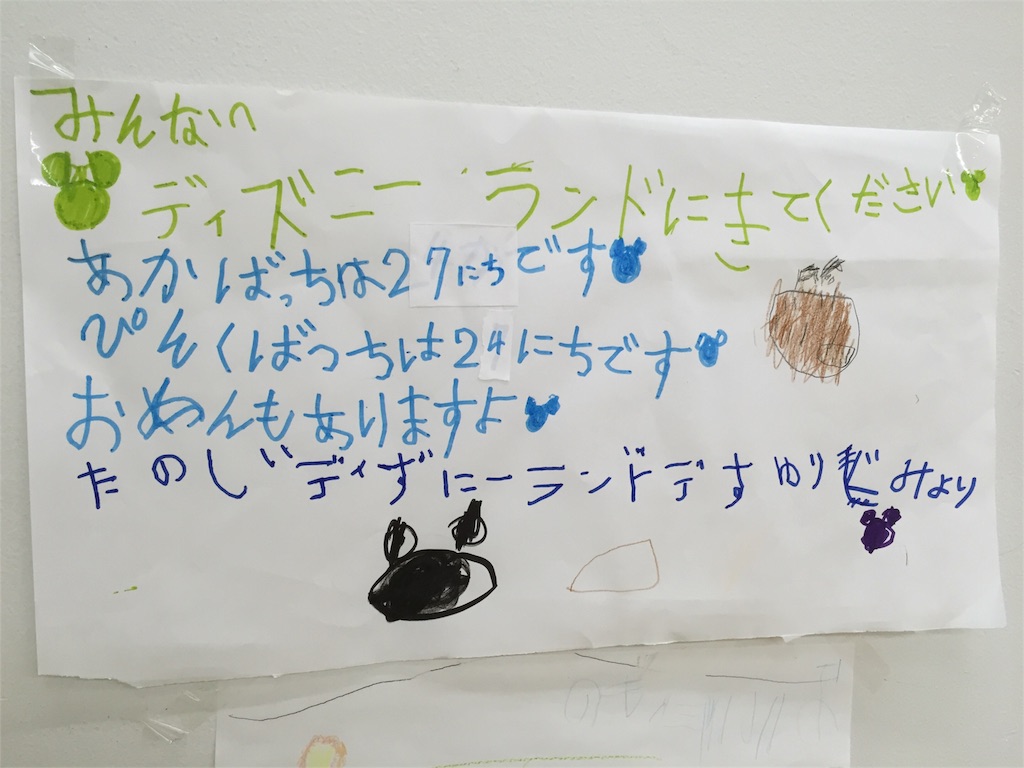 みんないへ
ディズニーランドにきてください
あかばっちは27にちです
ぴんくばっちは24にちです
おめんもありますよ
たのしいディずにーランドデす ゆり みより